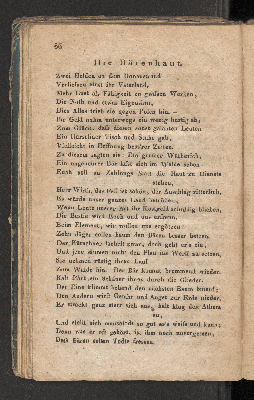 66
Die Bärenhaut.
Zwei Helden an dem Donaustrand
Verliessen einst ihr Vaterland,
Mehr Lust als Fähigkeit zu grossen Werken,
Die Noth und etwas Eigensinn,
Dies Alles trieb sie gegen Polen hin. —
Ihr Geld nahm unterwegs ein wenig heftig ab;
Zum Glück, dass diesen sonst
Ein Kürschner Tisch und Stube gab,
Vielleicht in Hoffnung bessrer Zeiten.
Zu diesem sagten sie: Ein grosser Wütherich,
Ein ungeheurer Bär lässt sich im Walde sehen.
Euch soll zu Zahlungs Statt die Haut zu Dienste
stehen,
Herr Wirth, das Fell ist schön, der Anschlag ritterlich,
Es würde unser ganzes Land
Wenn Leute unsrer Art
Die Bestie wird
Beim Element, wir wollen uns ergötzen!
Zehn Jäger sollen kaum den Bären besser hetzen.
Der Kürschner lächelt zwar, doch geht er's ein,
Und jene säumen nicht den Plan ins Werk zu setzen,
Sie nehmen rüstig ihren Lauf
Zum Walde hin. Der Bär kommt brummend wieder.
Kalt fährt ein Schauer ihnen durch die Glieder.
Der Eine klimmt bebend den nächsten Baum hinauf;
Den Andern wirft Gefahr und Angst zur Erde nieder.
Er streckt ganz starr sich aus, hält klug den Athem
an,
Und stellt sich mausetodt so gut er's weiss und kann;
Denn wie er oft gehört, is ihm noch unvergessen,
Dass Bären selten Todte fressen.